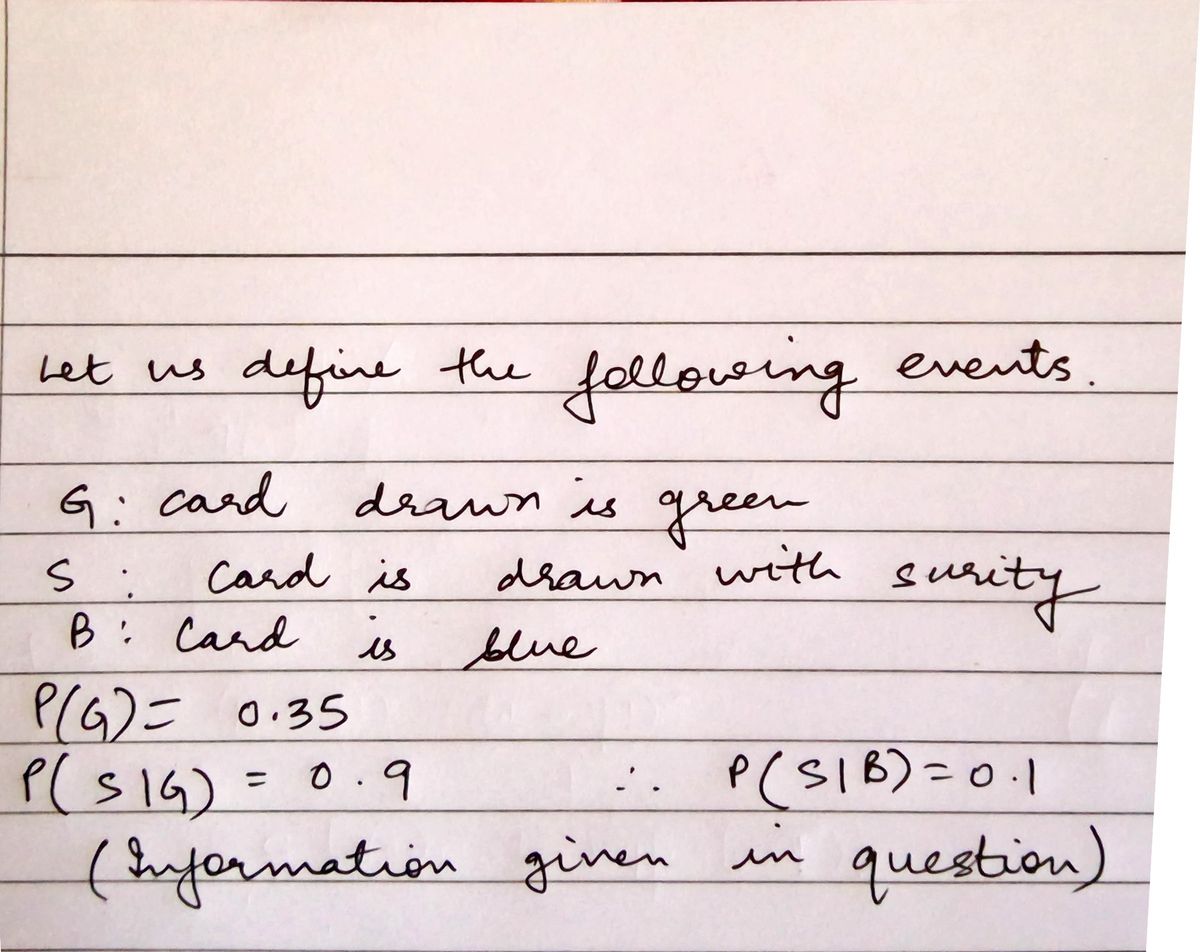 Let us define the following events.
G: card drawn is green
S : Card is drawn with surity
B : Card is blue
P(G) = 0.35
P(S|G) = 0.9 ∴ P(S|B) = 0.1
(Information given in question)